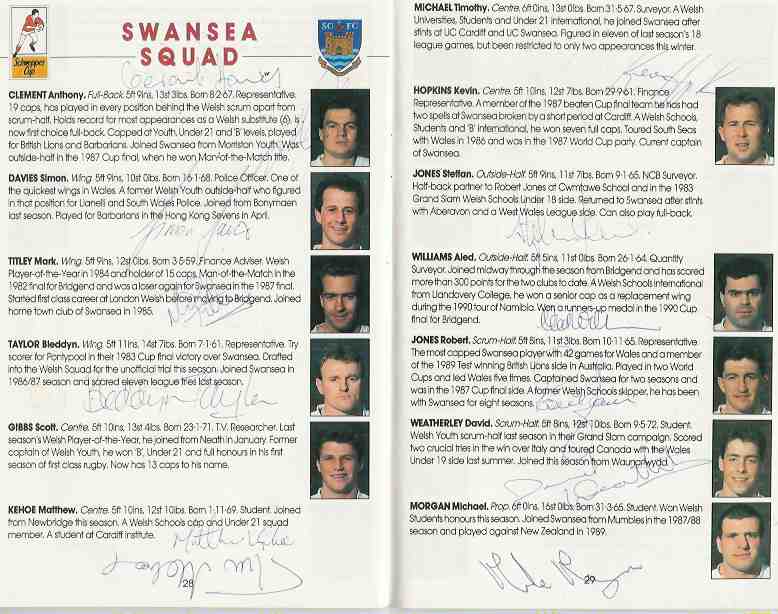 SWANSEA
SQUAD
Schweppes
Cup
CLEMENT Anthony. Full-Back. 5ft 9ins, 13st 3lbs. Born 8·2·67. Representative.
19 caps, has played in every position behind the Welsh scrum apart from
scrum-half. Holds record for most appearances as a Welsh substitute (6). Is
now first choice full-back. Capped at Youth, Under 21 and 'B' levels, played
for British Lions and Barbarians. Joined Swansea from Morriston Youth. Was
outside-half in the 1987 Cup final, when he won Man-of-the-Match title.
DAVIES Simon. Wing. 5ft 9ins, 10st 0lbs. Born 16·1·68. Police Officer. One
of the quickest wings in Wales. A former Welsh Youth outside-half who figured
in that position for Llanelli and South Wales Police. Joined from Bonymaen
last season. Played for Barbarians in the Hong Kong Sevens in April.
Simon Davies
TITLEY Mark. Wing. 5ft 9ins, 12st 0lbs. Born 3·5·59. Finance Adviser. Welsh
Player-of-the-Year in 1984 and holder of 15 caps. Man-of-the-Match in the
1982 final for Bridgend and was a loser again for Swansea in the 1987 final.
Started first class career at London Welsh before moving to Bridgend. Joined
home town club of Swansea in 1985.
TAYLOR Bleddyn. Wing. 5ft 11ins, 14st 7lbs. Born 7·1·61. Representative. Try
scorer for Pontypool in their 1983 Cup final victory over Swansea. Drafted
into the Welsh Squad for the unofficial trial this season. Joined Swansea in
1986/87 season and scored eleven league tries last season.
Bleddyn Taylor
GIBBS Scott. Centre. 5ft 10ins, 13st 4lbs. Born 23·1·71. T.V. Researcher. Last
season's Welsh Player-of-the-Year, he joined from Neath in January. Former
captain of Welsh Youth, he won 'B', Under 21 and full honours in his first
season of first class rugby. Now has 13 caps to his name.
KEHOE Matthew. Centre. 5ft 10ins, 12st 10lbs. Born 1·11·69. Student. Joined
from Newbridge this season. A Welsh Schools cap and Under 21 squad
member. A student at Cardiff Institute.
Matthew Kehoe
28
MICHAEL Timothy. Centre. 6ft 0ins, 13st 0lbs. Born 31·5·67. Surveyor. A Welsh
Universities, Students and Under 21 international, he joined Swansea after
stints at UC Cardiff and UC Swansea. Figured in eleven of last season's 18
league games, but been restricted to only two appearances this winter.
HOPKINS Kevin. Centre. 5ft 10ins, 12st 7lbs. Born 29·9·61. Finance
Representative. A member of the 1987 beaten Cup final team he has had
two spells at Swansea broken by a short period at Cardiff. A Welsh Schools,
Students and 'B' international, he won seven full caps. Toured South Seas
with Wales in 1986 and was in the 1987 World Cup party. Current captain
of Swansea.
JONES Steffan. Outside-Half. 5ft 9ins, 11st 7lbs. Born 9·1·65. NCB Surveyor.
Half-back partner to Robert Jones at Cwmtawe School and in the 1983
Grand Slam Welsh Schools Under 18 side. Returned to Swansea after stints
with Aberavon and a West Wales League side. Can also play full-back.
WILLIAMS Aled. Outside-Half. 5ft 5ins, 11st 0lbs. Born 26·1·64. Quantity
Surveyor. Joined midway through the season from Bridgend and has scored
more than 300 points for the two clubs to date. A Welsh Schools international
from Llandovery College, he won a senior cap as a replacement wing
during the 1990 tour of Namibia. Won a runners-up medal in the 1990 Cup
final for Bridgend.
JONES Robert. Scrum-Half. 5ft 8ins, 11st 3lbs. Born 10·11·65. Representative.
The most capped Swansea player with 42 games for Wales and a member
of the 1989 Test winning British Lions side in Australia. Played in two World
Cups and led Wales five times. Captained Swansea for two seasons and
was in the 1987 Cup final side. A former Welsh Schools skipper, he has been
with Swansea for eight seasons.
WEATHERLEY David. Scrum-Half. 5ft 8ins, 12st 10lbs. Born 9·5·72. Student.
Welsh Youth scrum-half last season in their Grand Slam campaign. Scored
two crucial tries in the win over Italy and toured Canada with the Wales
Under 19 side last summer. Joined this season from Waunarlwydd.
MORGAN Michael. Prop. 6ft 0ins, 16st 0lbs. Born 31·3·65. Student. Won Welsh
Students honours this season. Joined Swansea from Mumbles in the 1987/88
season and played against New Zealand in 1989.
29